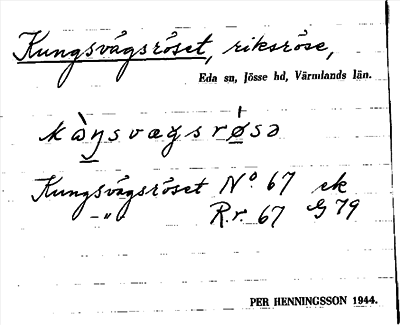 Kungsvågsröset, riksröse,
Eda sn, Jösse hd, Värmlands län.
kàŋsvægsrø̀sə
Kungsvågsröset No 67 ek
–"– R.r. 67 G 79
PER HENNINGSSON 1944.